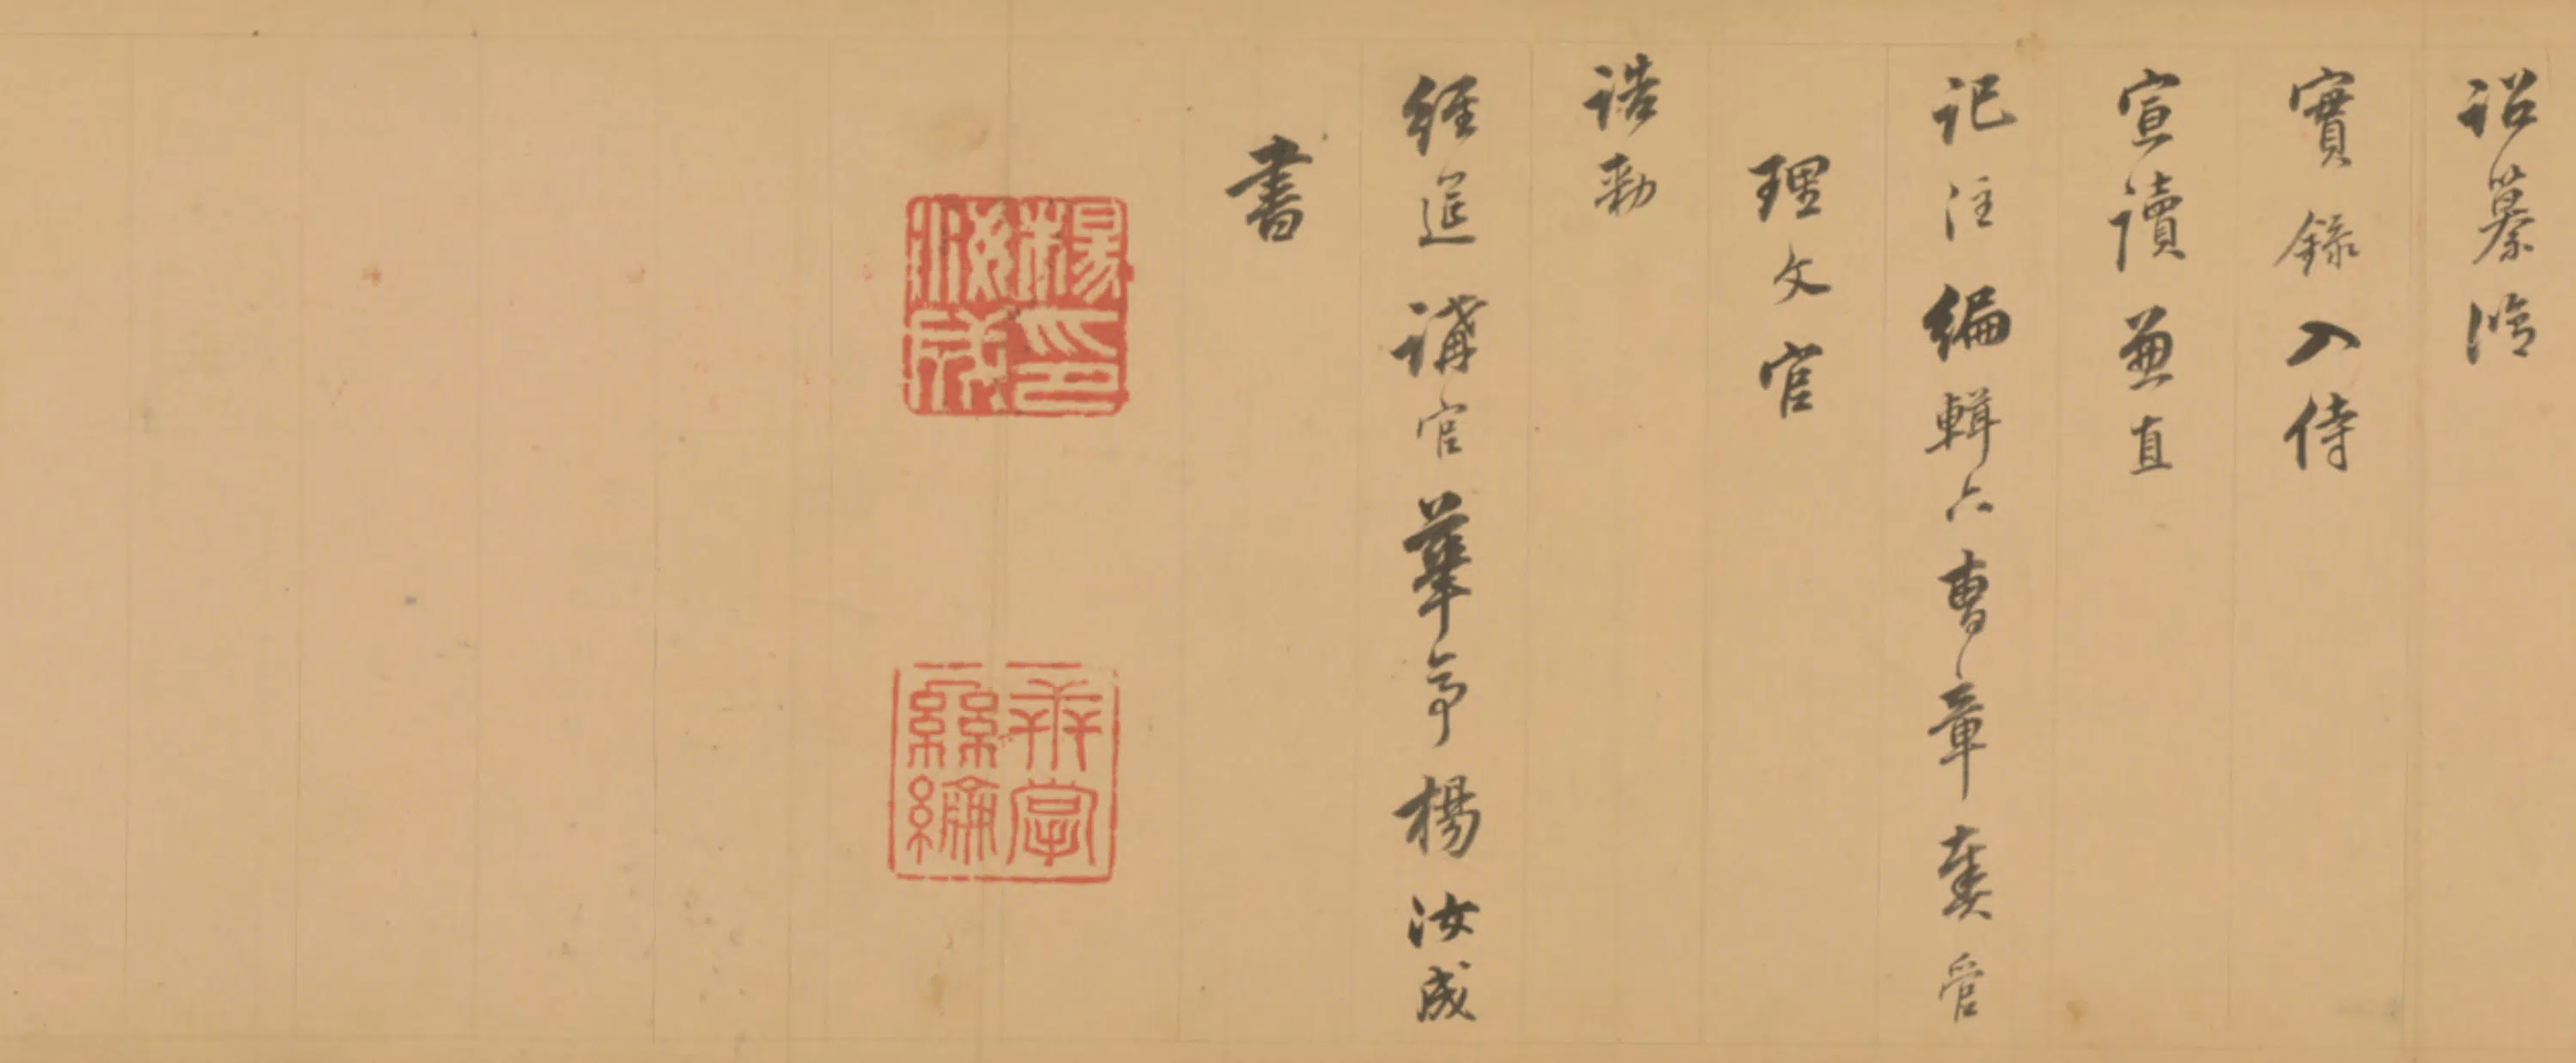 詔纂修
實錄入侍
宣讀兼直
記注編輯六曹章奏管
理文官
誥勅
經筵講官華亭楊汝成
書
楊印汝成
掌絲綸